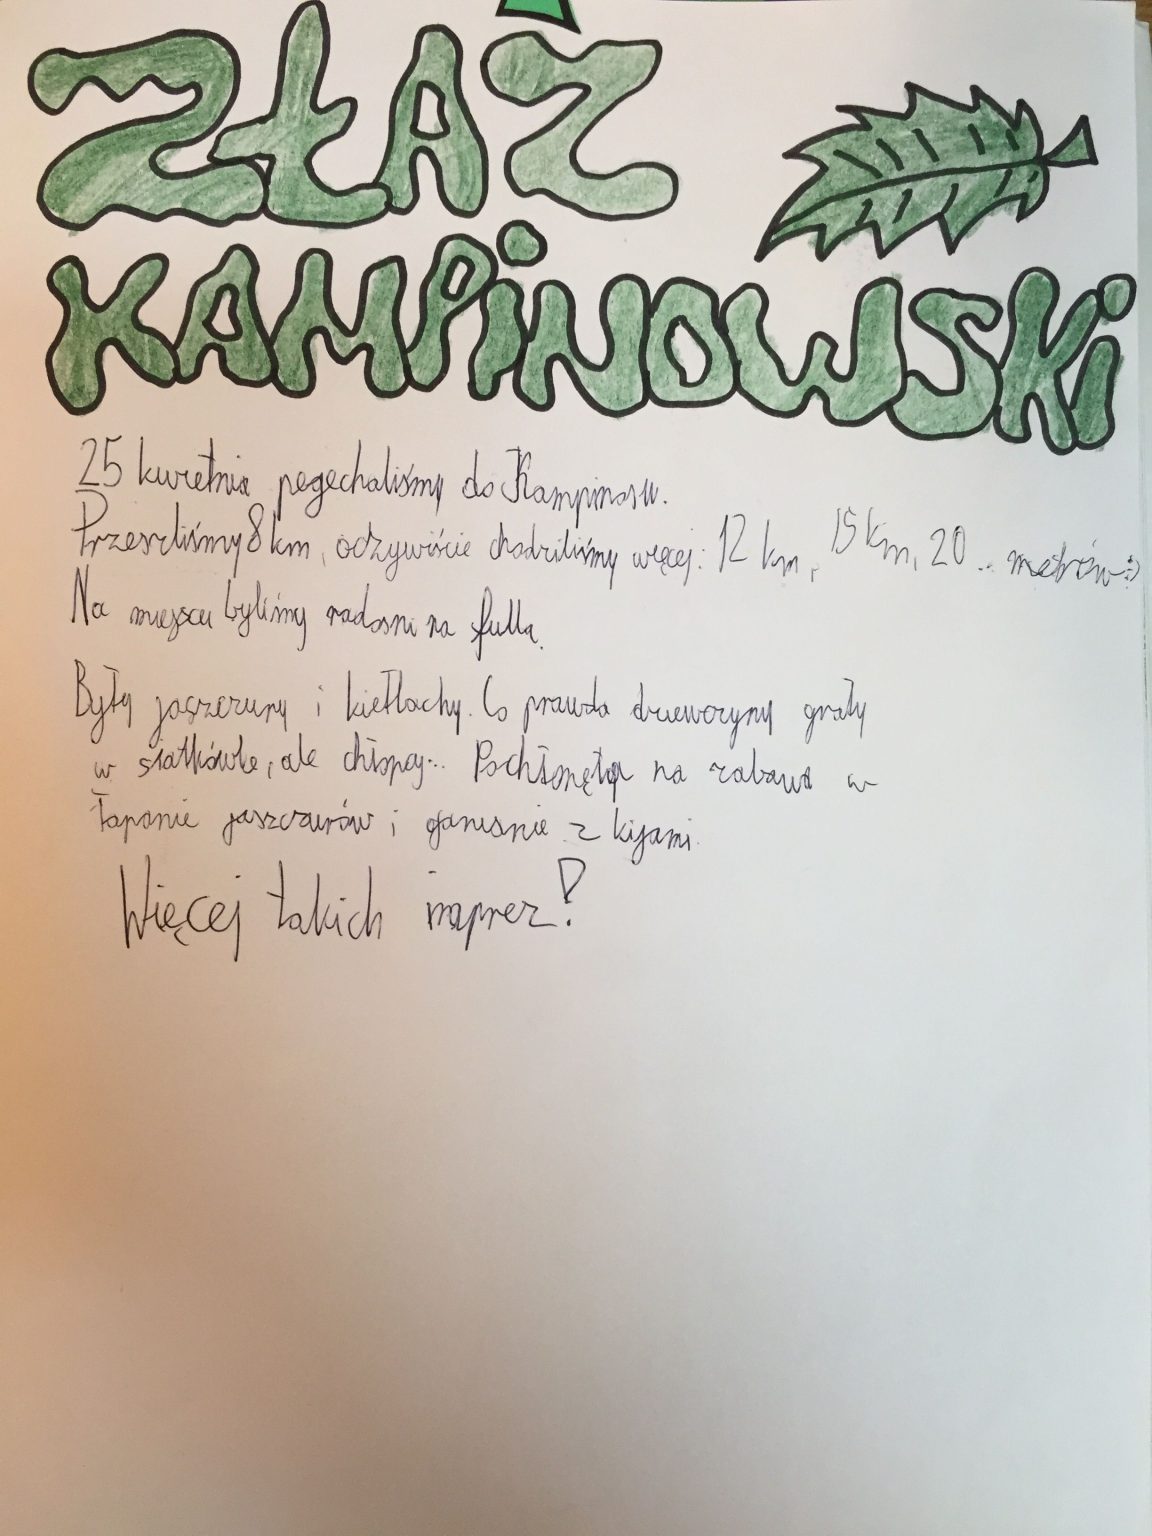 ZŁAŹ
KAMPiNOWSKi
25 kwietnia pojechaliśmy do Kampinosu.
Przeszliśmy 8 km, oczywiście chodziliśmy więcej: 12 km, 15 km, 20... metrów :)
Na miejscu byliśmy radośni na fulla.
Były jaszczury i kiełbachy. Co prawda dziewczyny grały
w siatkówkę, ale chłopcy... Pochłonęła na zabawa w
łapanie jaszczurów i ganianie z kijami.
Więcej takich imprez!